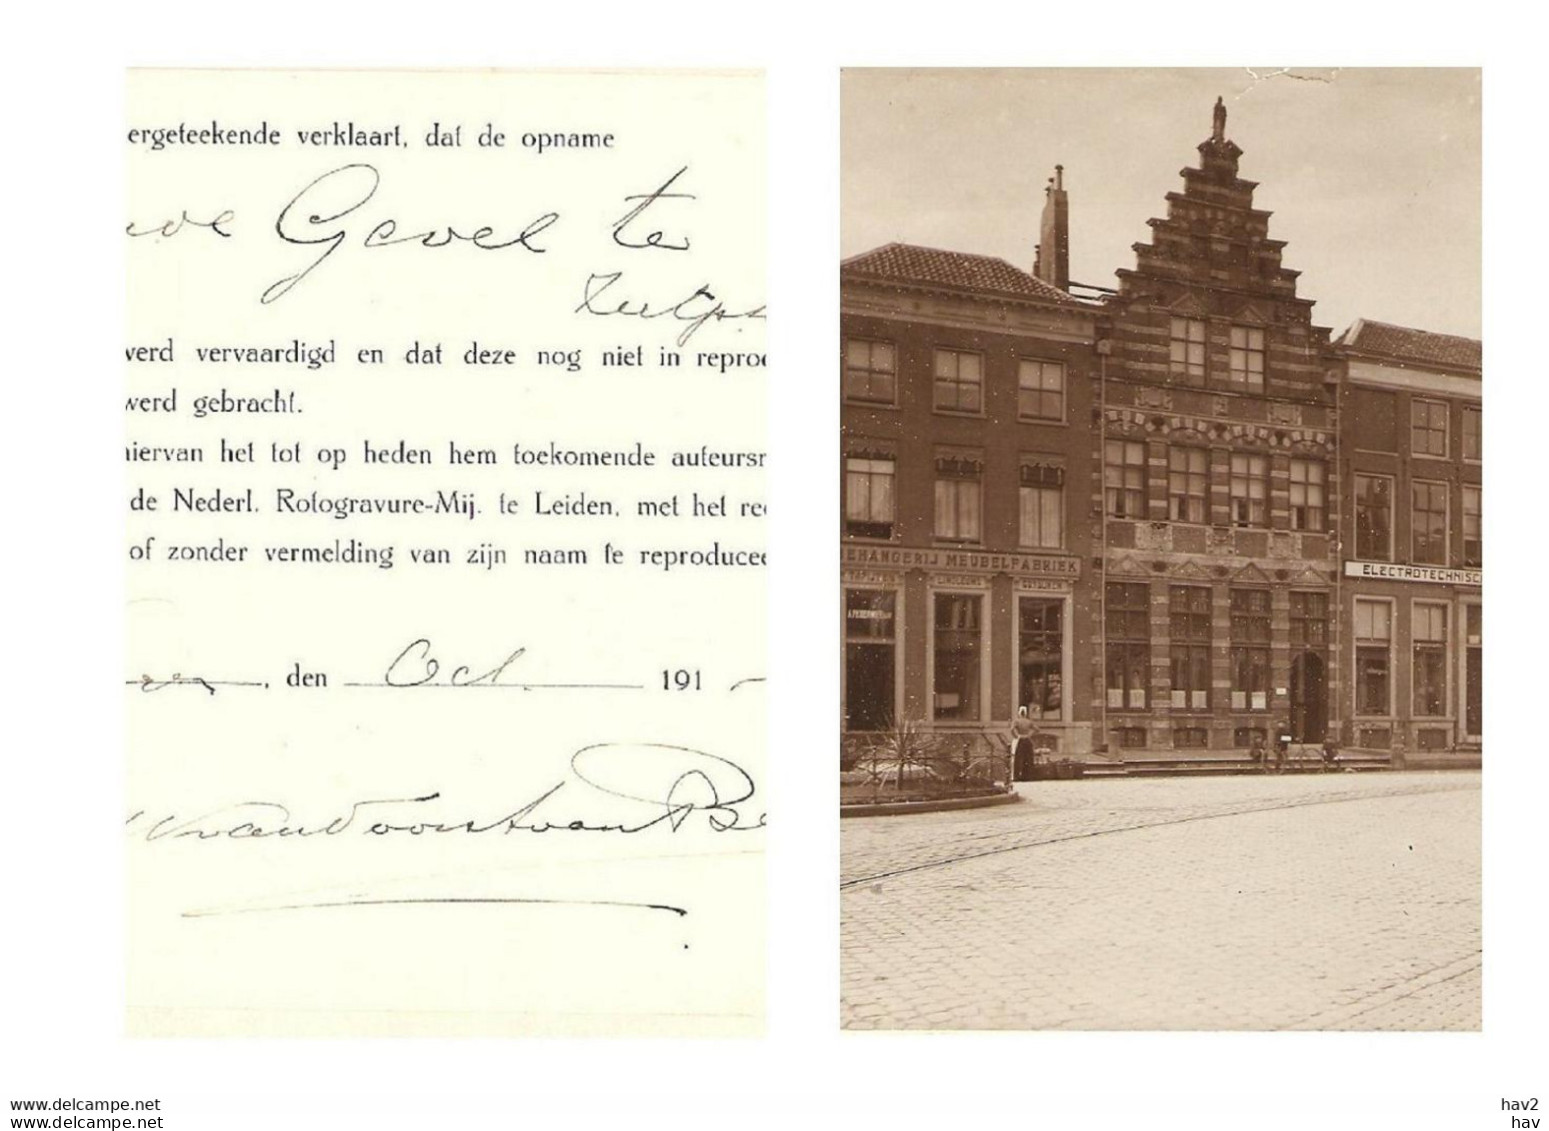 ergeteekende verklaart, dat de opname
Gevel te
Zutph
werd vervaardigd en dat deze nog niet in reprod
werd gebracht.
hiervan het tot op heden hem toekomende auteursr
de Nederl. Rotogravure-Mij. te Leiden, met het rec
of zonder vermelding van zijn naam te reproducee
, den Oct. 191
van Voorst van Be
BEHANGERIJ MEUBELFABRIEK
TAPIJTEN LINOLEUMS GORDIJNEN
ELECTROTECHNISC
www.delcampe.net
www.delcampe.net
hav2
hav